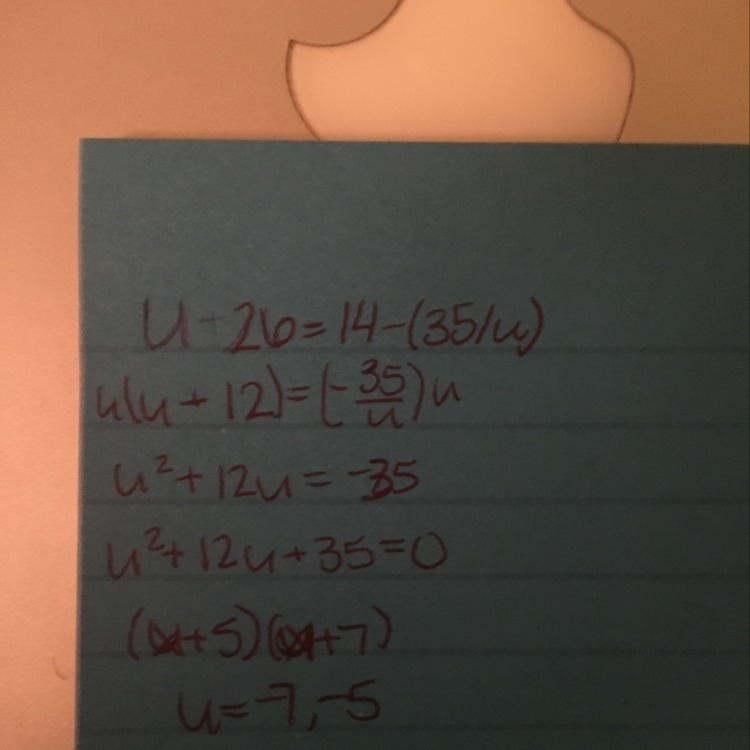 u + 26 = 14 - (35/u)
u(u + 12) = (-35/u)u
u² + 12u = -35
u² + 12u + 35 = 0
(u+5)(u+7)
u = -7, -5